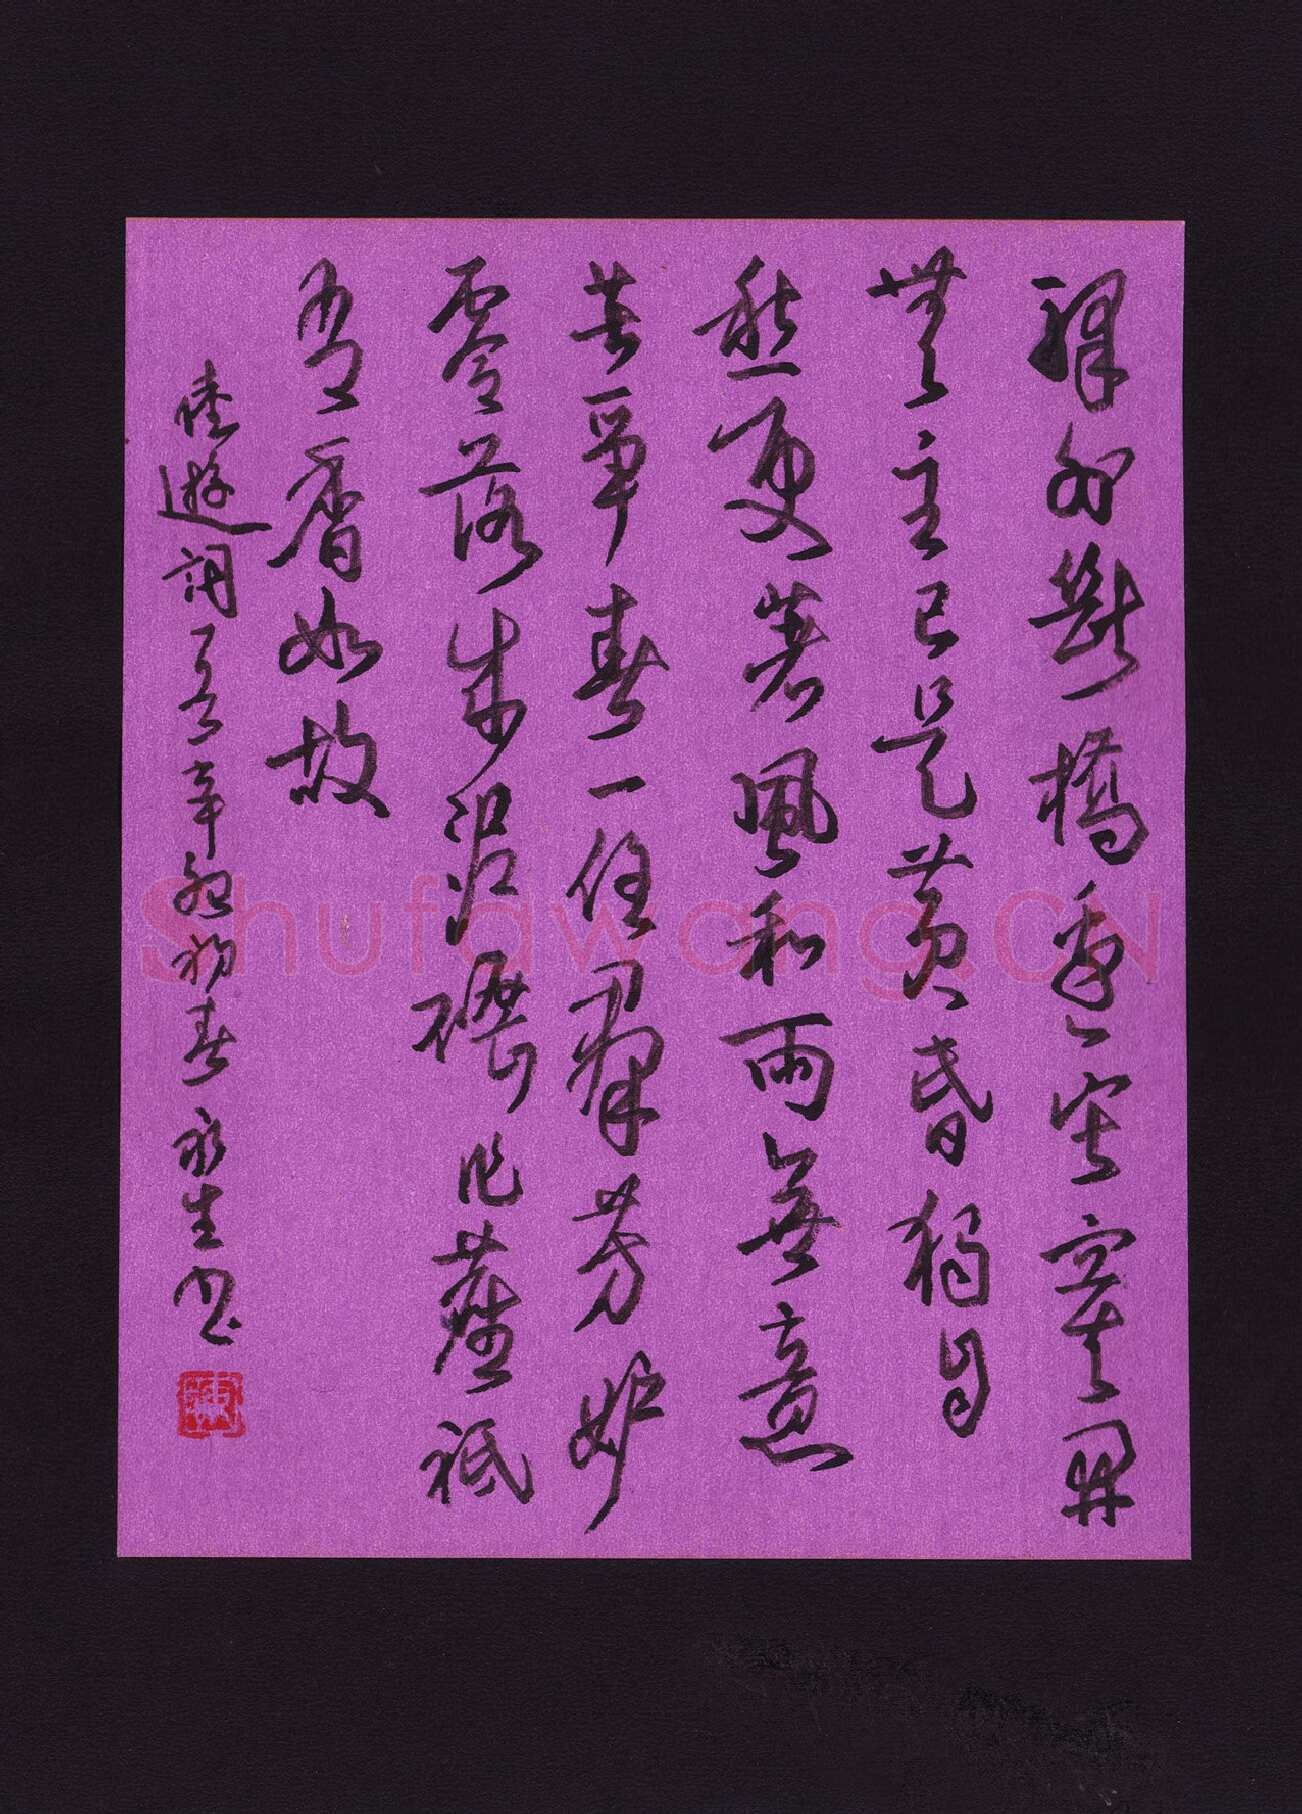 驛外斷橋邊寂寞開
無主已是黃昏獨自
愁更著風和雨無意
苦爭春一任羣芳妒
零落成泥碾作塵祇
有香如故
陸遊詞一首辛卯初春永生書
Shufawang.CN